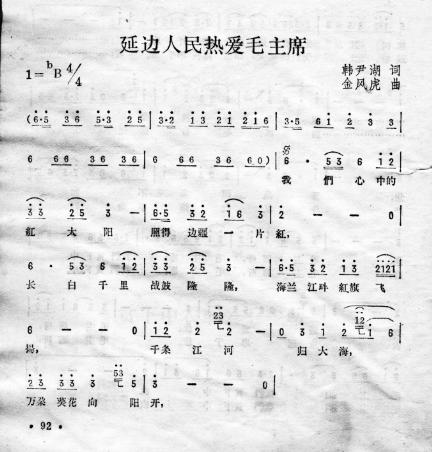 延边人民热爱毛主席
1=ᵇB 4/4
韩尹湖 词
金凤虎 曲
(6·5 36 5·3 25 | 3·5 23 216 216 | 3·5 61 2 3 3 |
6 66 36 66 | 6 66 36 60) | 6 · 53 6 12 |
我 們 心 中的
33 25 3 — | 6·5 32 16 3 | 2 — — 0 |
紅 太 阳 照得 边疆 一 片 紅,
6 · 53 6 12 | 33 25 3 — | 6·5 32 13 2121 |
长 白 千 里 战鼓 隆 隆, 海兰 江畔 紅旗 飞
6 — — 0 | 1 2 2 — | 0 31 2 1 6 |
揚, 千条 江 河 归 大 海,
23
12
2 3 33 3 53 | 3 — — 0 |
万朵 葵花 向 阳 开,
• 92 •